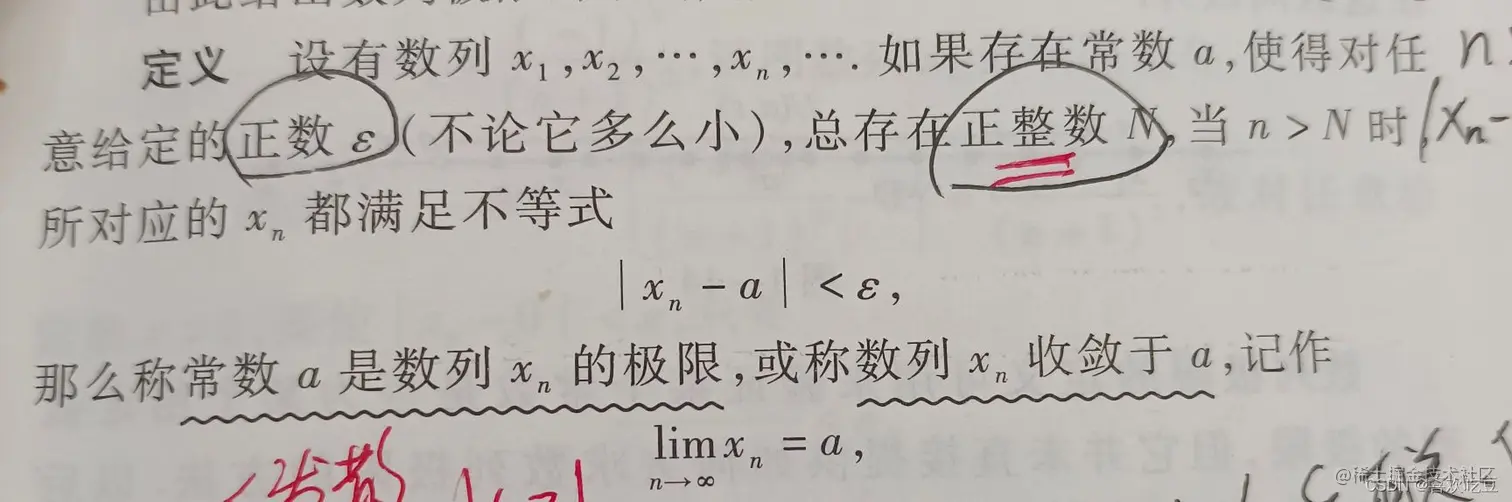 定义 设有数列 x₁,x₂,⋯,xₙ,⋯. 如果存在常数 a,使得对任 n
意给定的正数 ε(不论它多么小),总存在正整数 N,当 n>N 时 |xₙ-
所对应的 xₙ 都满足不等式
|xₙ-a|<ε,
那么称常数 a 是数列 xₙ 的极限,或称数列 xₙ 收敛于 a,记作
lim xₙ=a,
n→∞
发散
@稀土掘金技术社区